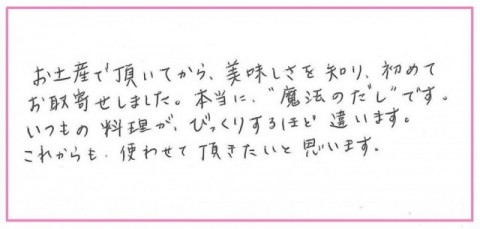 お土産で頂いてから、美味しさを知り、初めて
お取寄せしました。本当に、"魔法のだし"です。
いつもの料理が、びっくりするほど違います。
これからも、使わせて頂きたいと思います。